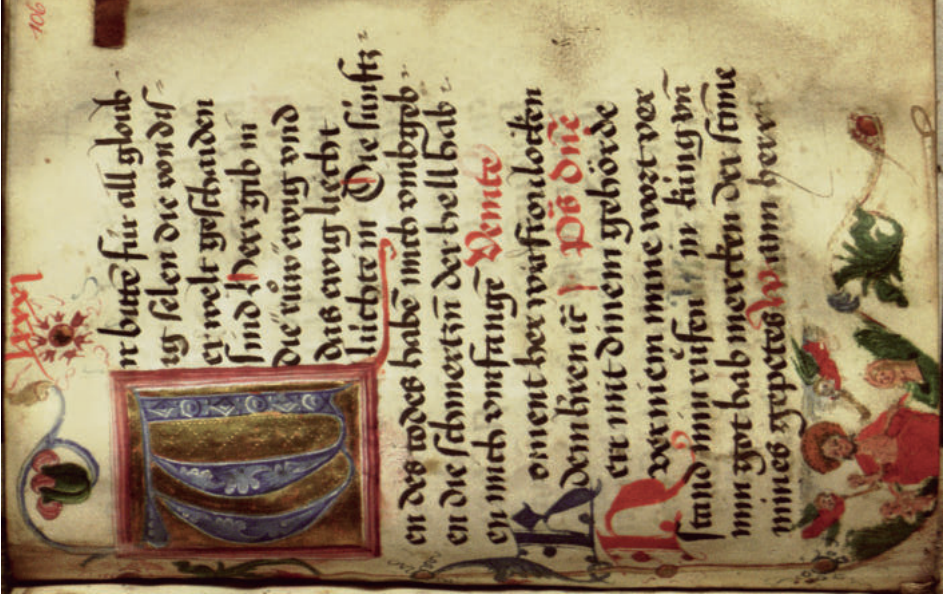 106
ir bittē für all gloub-
ig ſelen die von diſ-
er welt geſchaiden
ſind Herr gib in
die rüw ewig vnd
das ewig liecht
lüchte in Die ſünftz-
en des todes habē mich vmbgeb-
en die ſchmertzn der hell hab-
en mich vmfangē Venite
Koment her wir fronlocken
dem herren ps dn̄e
err mit dinem gehörde
verniem mine wort ver
ſtand min rüfen min king vn̄
min got hab mercken der ſtīme
mines gepetes Wann herr